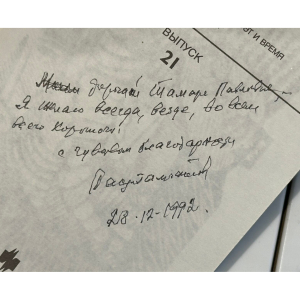 ЭТ И ВРЕМЯ
ВЫПУСК
21
дорогой Тамаре Павловне,
Я желаю всегда, везде, во всем
всего хорошего!
с чувством благодарности
28.12.1992.